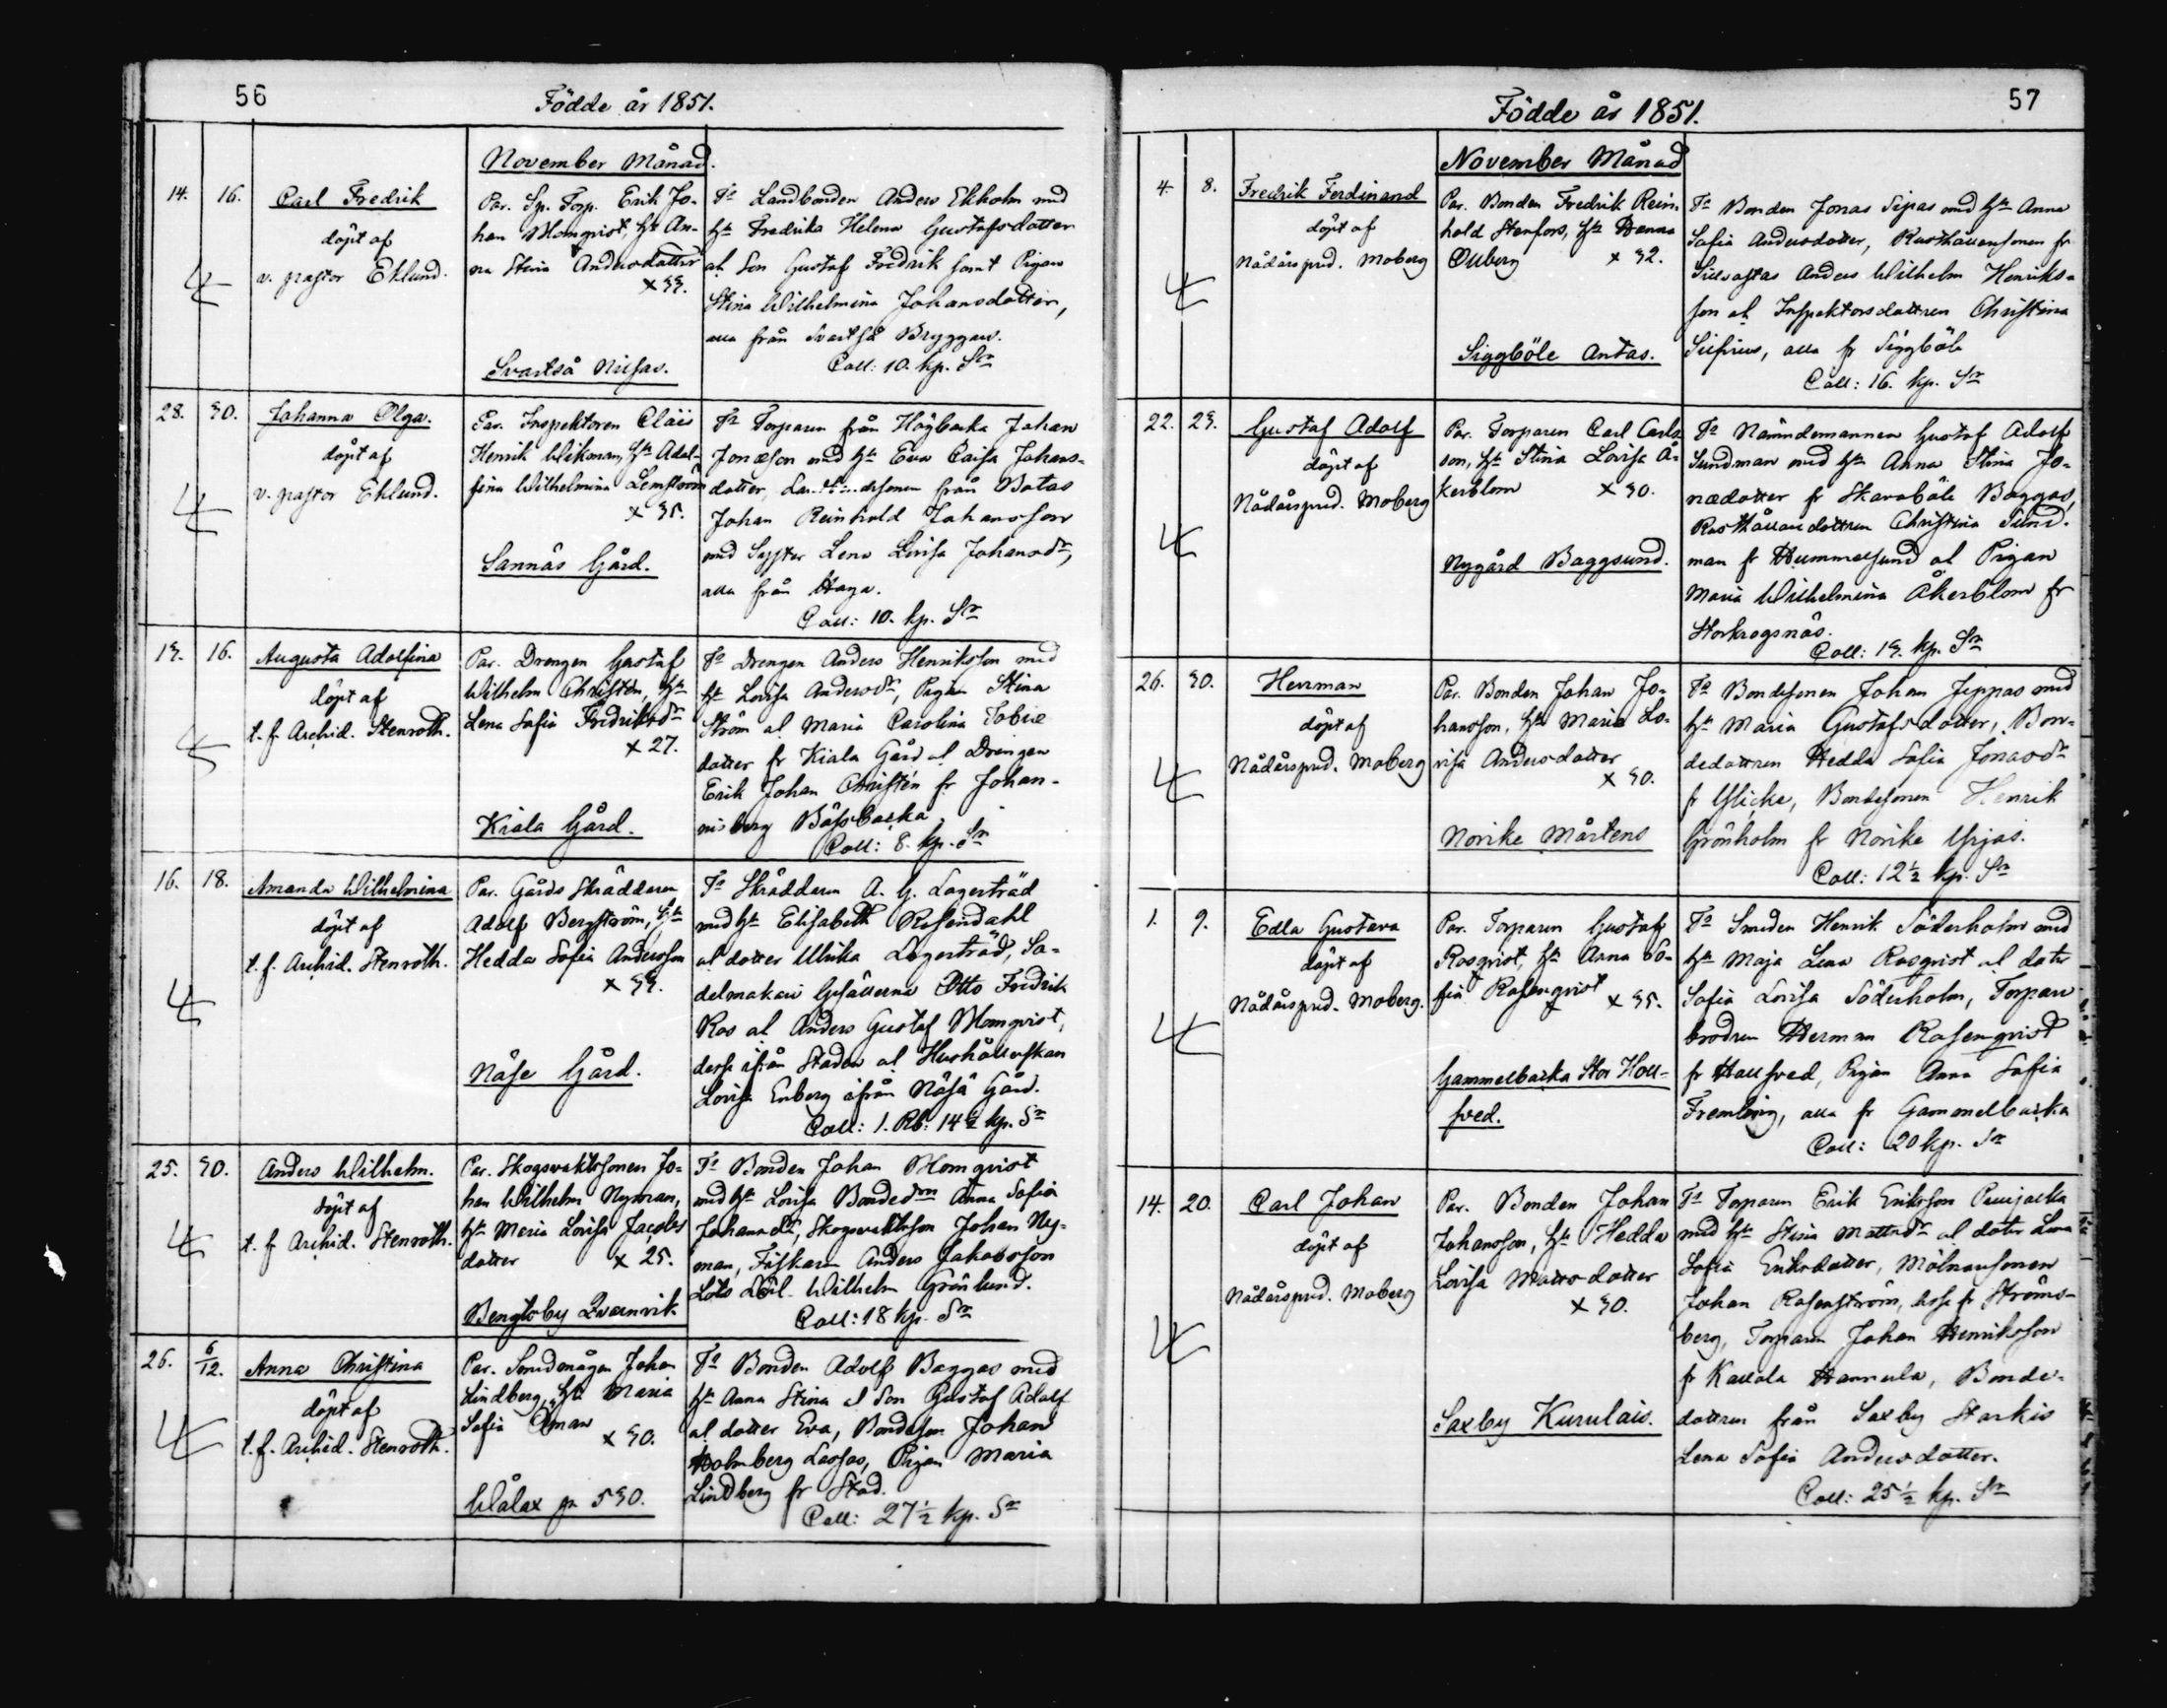 56
Födde år 1851.
November Månad.
14.
16.
Carl Fredrik
döpt af
v. pastor Eklund.
Par. Sp. Torp. Erik Jo-
han Blomqvist, hu An-
na Stina Andersdotter
x 33.
Svartså Nissas.
Landbonden Anders Ekholm med
Fredrika Helena Gustafsdotter
Son Gustaf Fredrik samt Pigan
Stina Wilhelmina Johansdotter,
alla från Svartså Bryggars.
Coll: 10. kp. Sr
28.
30.
Johanna Olga.
döpt af
v. pastor Eklund.
Par. Inspektoren
Henrik Wikman, Adol-
fina Wilhelmina Lemström
x 35.
Sannäs Gård.
Torparen från Högbacka Johan
Jonasson med Eva Caisa Johans-
dotter, från Botas
Johan Reinhold Johansson
med Syster Lena Lovisa Johansdr,
alla från Haga.
Coll: 10. kp. Sr
13.
16.
Augusta Adolfina
döpt af
t.f. Archid. Stenroth.
Par. Drengen Gustaf
Wilhelm Christén,
Lena Sofia Fredriksdr
x 27.
Kiala Gård.
Drengen Anders Henriksson med
Lovisa Andersdr, Pigan Stina
Ström Maria Carolina Tobia
dotter fr Kiala Gård Drengen
Erik Johan Christén fr Johan-
nisberg Båssbacka.
Coll: 8. kp. Sr
16.
18.
Amanda Wilhelmina
döpt af
t.f. Archid. Stenroth.
Par. Gårds Skräddaren
Adolf Bergström,
Hedda Sofia Andersson
x 33.
Näse Gård.
Skräddaren A. G. Lagerträd
med Elisabeth Rosendahl
dotter Ulrika Lagerträd, Sa-
delmakare Gesällerna Otto Fredrik
Ros Anders Gustaf Blomqvist,
desse ifrån Staden Hushållerskan
Lovisa Enberg ifrån Näse Gård.
Coll: 1. Rb: 14 1/2 kp. Sr
25.
30.
Anders Wilhelm.
döpt af
t.f. Archid. Stenroth.
Par. Skogsvaktssonen Jo-
han Wilhelm Nyman,
Maria Lovisa Jacobs
dotter x 25.
Bengtsby Qvarnvik
Bonden Johan Blomqvist
med Lovisa Anna Sofia
Johansdr, Skogsvaktsson Johan Ny-
man, Fiskaren Anders Jakobsson
Lots Wilhelm Grönlund.
Coll: 18 kp. Sr
26.
6/12.
Anna Christina
döpt af
t.f. Archid. Stenroth.
Par. Smidmågen Johan
Lindberg, Maria
Sofia Öman
x 30.
Wålax 530.
Bonden Adolf Baggas med
Anna Stina Son Gustaf Adolf
dotter Eva, Bondeson Johan
Holmberg Lassas, Pigan Maria
Lindberg fr Stad.
Coll: 27 1/2 kp. Sr
57
Födde år 1851.
November Månad
4.
8.
Fredrik Ferdinand
döpt af
Nådårspred. Moberg
Par. Bonden Fredrik Rein-
hold Stenfors, Hanna
x 32.
Siggböle Antas.
Bonden Jonas Sipas med Anna
Sofia Andersdotter, Rusthållaresonen fr
Anders Wilhelm Henriks-
son Inspektorsdottren Christina
alla fr Siggböle
Coll: 16. kp. Sr
22.
23.
Gustaf Adolf
döpt af
Nådårspred. Moberg
Par. Torparen Carl Carls
son, Stina Lovisa Å-
kerblom x 30.
Nygård Baggsund.
Nämndemannen Gustaf Adolf
Sundman med Anna Stina Jo-
nædotter fr Skavaböle Baggas,
Rusthållaredottren Christina Sund-
man fr Hummelsund Pigan
Maria Wilhelmina Åkerblom fr
Storkrogsnäs.
Coll: 13. kp. Sr
26.
30.
Herrman
döpt af
Nådårspred. Moberg
Par. Bonden Johan Jo-
hansson, Maria Lo-
visa Andersdotter
x 30.
Norike Mårtens
Bondesonen Johan Jeppas med
Maria Gustafsdotter, Bon-
dedottren Hedda Sofia Jonasdr
fr Ylicke, Bondesonen Henrik
Grönholm fr Norike Yrjas.
Coll: 12 1/2 kp. Sr
1.
9.
Edla Gustava
döpt af
Nådårspred. Moberg.
Par. Torparen Gustaf
Rosqvist, Anna So-
fia Rosenqvist x 35.
Gammelbacka Stor Holl-
sved.
Smeden Henrik Söderholm med
Maja Lena Rosqvist dotter
Sofia Lovisa Söderholm, Torpare
brodren Herman Rosenqvist
fr Hallsved, Pigan Anna Sofia
Fremling, alla fr Gammelbacka
Coll: 20 kp. Sr
14.
20.
Carl Johan
döpt af
Nådårspred. Moberg
Par. Bonden Johan
Johansson, Hedda
Lovisa Mattsdotter
x 30.
Saxby Kurulais.
Torparen Erik Eriksson
med Stina Mattsdr dotter Lena
Sofia Eriksdotter, Mölnaresonen
Johan Rosenström, desse fr Ströms-
berg, Torparen Johan Henriksson
fr Kallola Hannula, Bonde-
dottren från Saxby Starkis
Lena Sofia Andersdotter.
Coll: 25 1/2 kp. Sr